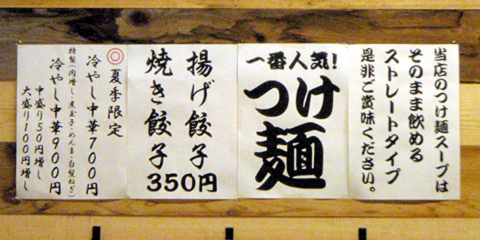 当店のつけ麺スープは
そのまま飲める
ストレートタイプ
是非ご賞味ください。
一番人気!
つけ
麺
揚げ餃子
焼き餃子
350円
◎夏季限定
冷やし中華700円
特製(肉増し・煮玉子・めんま・白髪ねぎ)
冷やし中華900円
中盛り50円増し
大盛り100円増し